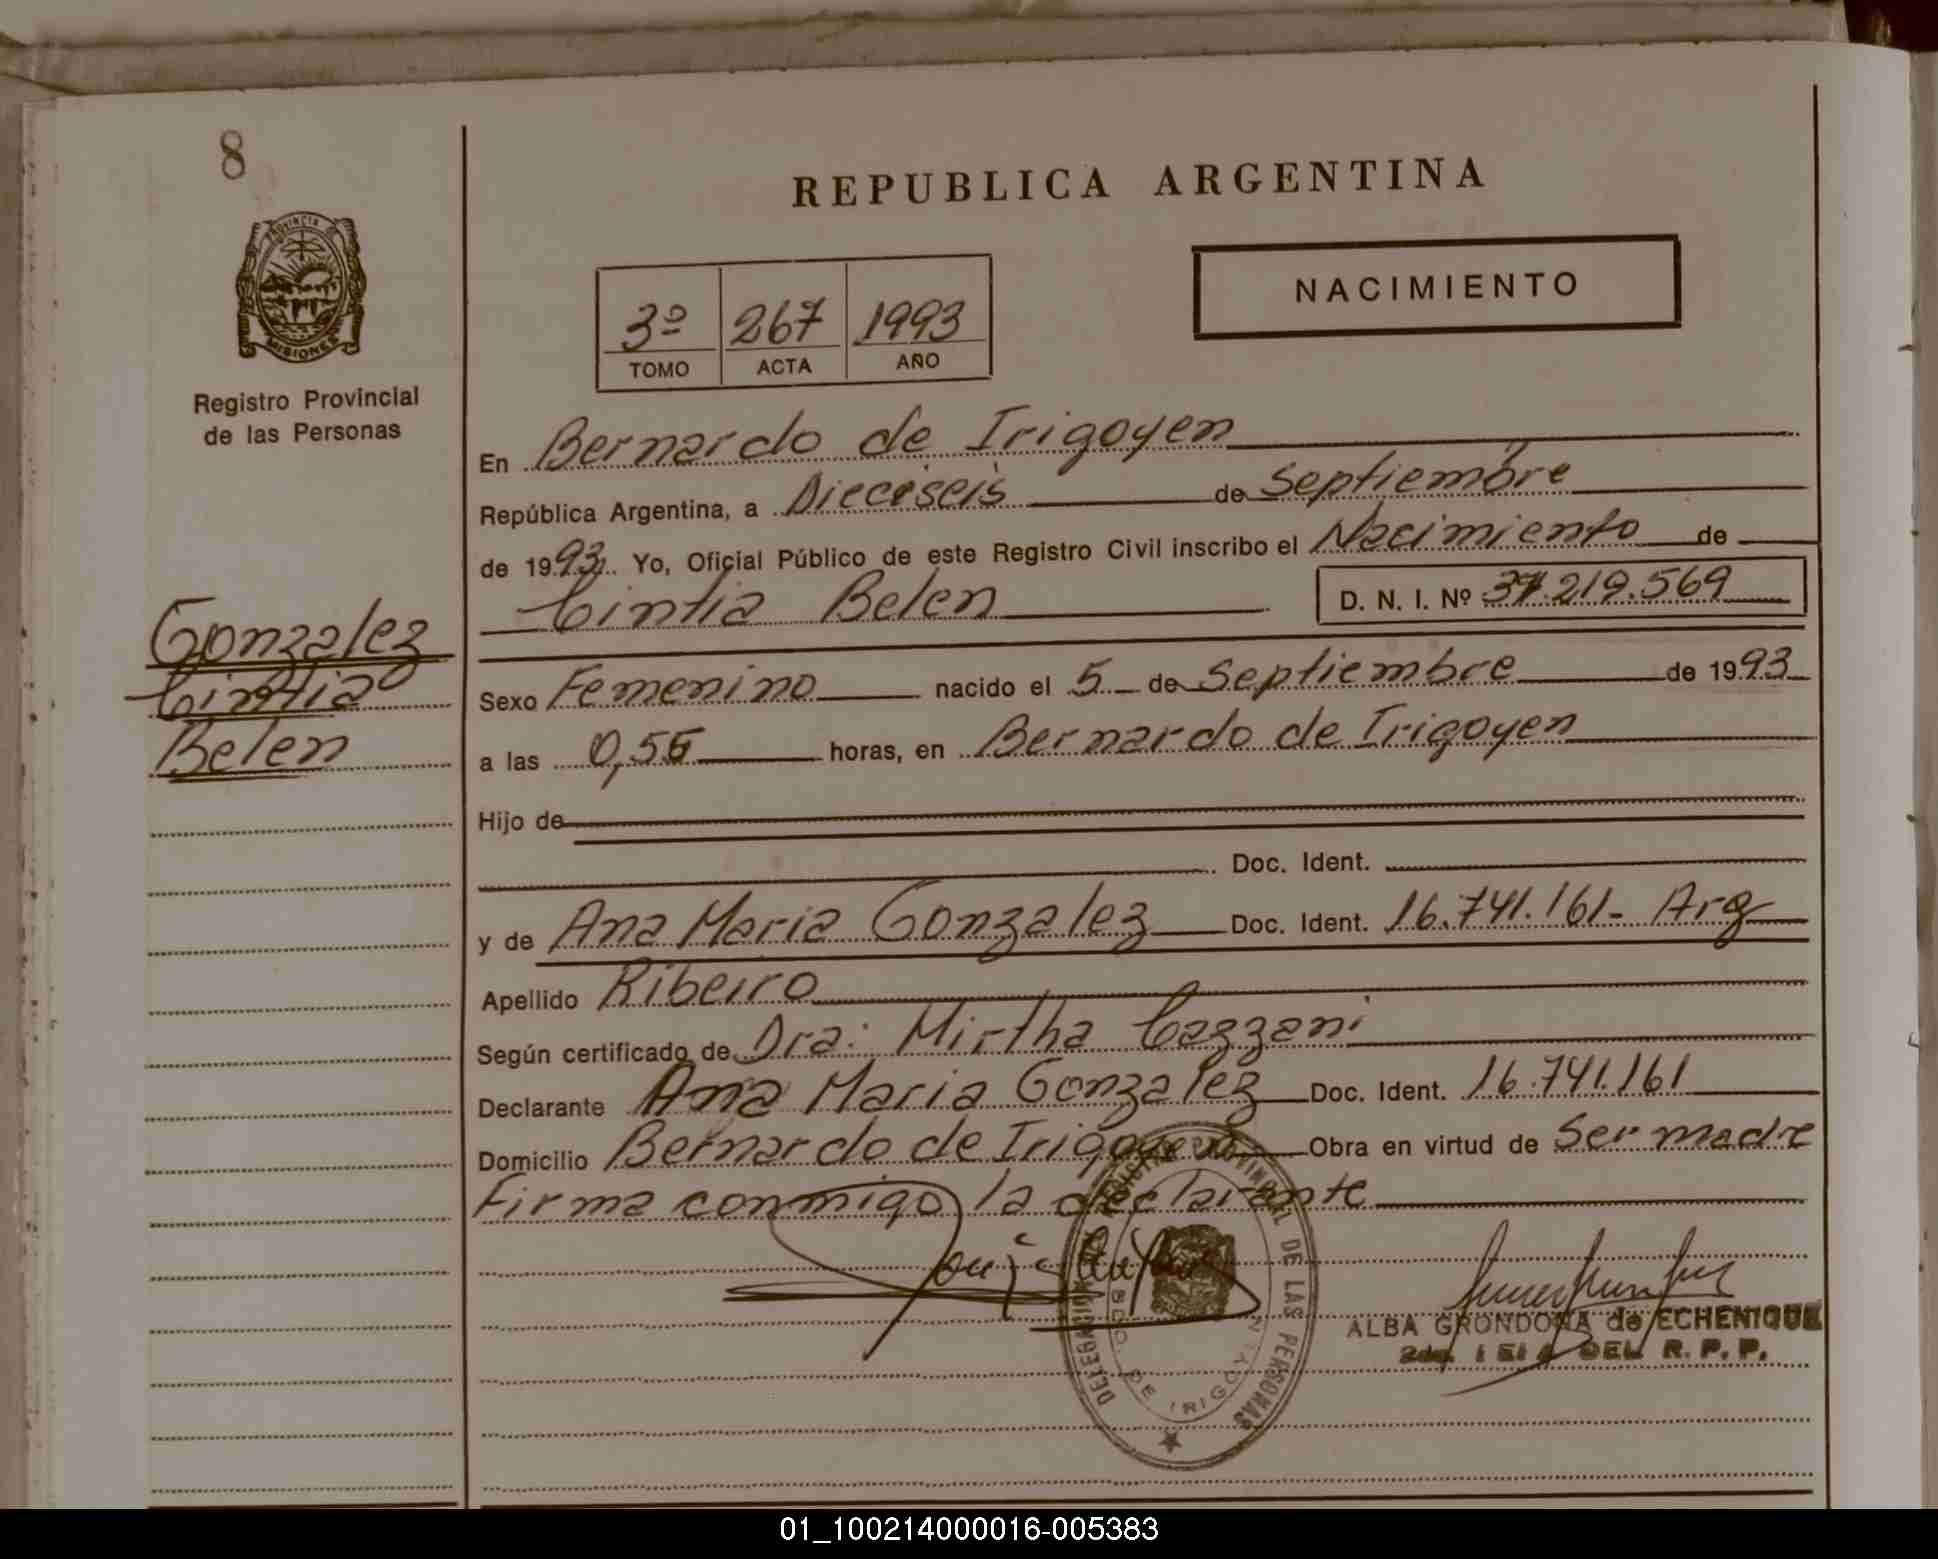 8
REPUBLICA ARGENTINA
PROVINCIA DE
MISIONES
Registro Provincial
de las Personas
NACIMIENTO
3º 267 1993
TOMO ACTA AÑO
En Bernardo de Irigoyen
República Argentina, a Dieciseis de Septiembre
de 1993. Yo, Oficial Público de este Registro Civil inscribo el Nacimiento de
Cintia Belen D. N. I. Nº 37.219.569
Gonzalez
Cintia
Belen
Sexo Femenino nacido el 5 de Septiembre de 1993
a las 0,55 horas, en Bernardo de Irigoyen
Hijo de
Doc. Ident.
y de Ana Maria Gonzalez Doc. Ident. 16.741.161- Arg
Apellido Ribeiro
Según certificado de Dra: Mirtha Cazzani
Declarante Ana Maria Gonzalez Doc. Ident. 16.741.161
Domicilio Bernardo de Irigoyen Obra en virtud de Ser madre
Firma conmigo la declarante
DELEGACION REGISTRO PROVINCIAL DE LAS PERSONAS
BDO. DE IRIGOYEN
ALBA GRONDONA de ECHENIQUE
DEL R. P. P.
01_100214000016-005383